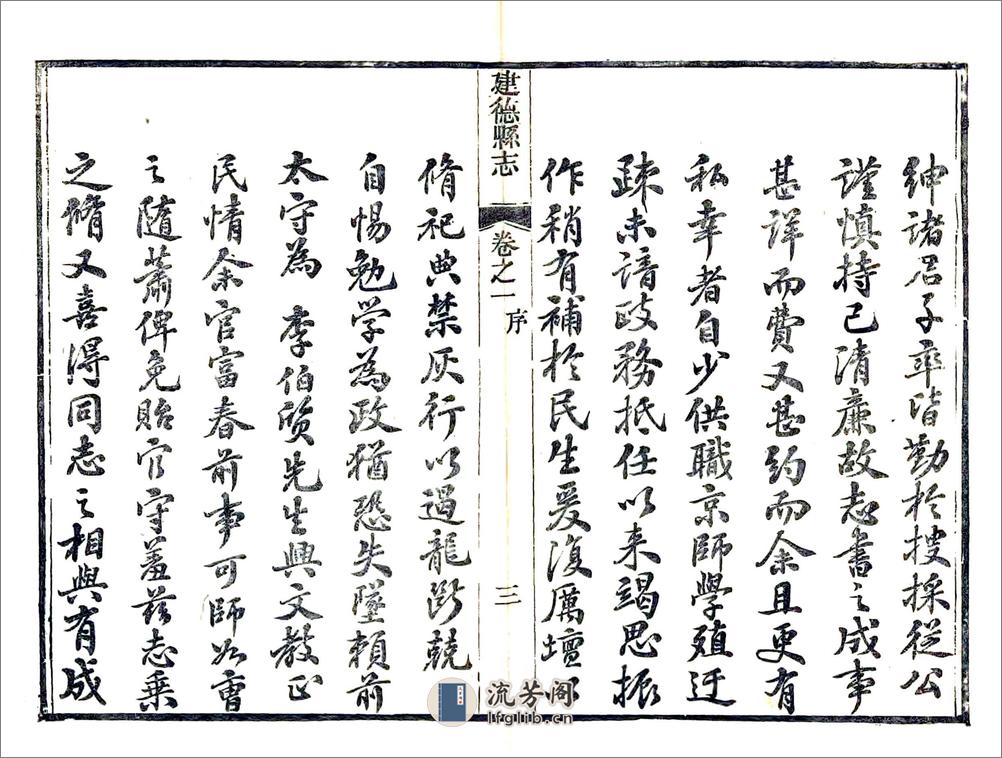 紳諸君子率皆勤於搜採從公
謹慎持己清廉故志書之成事
甚詳而費又甚約而余且更有
私幸者自少供職京師學殖迂
疎未諳政務抵任以来竭思振
作稍有補於民生爰復厲壇
建德縣志
卷之一
序
三
脩祀典禁灰行以過龍斷兢兢
自惕勉学為政猶恐失墜頼前
太守為 李伯質先生興文教正
民情余官富春前事可師如曹
之隨蕭俾免貽官守羞茲志乗
之脩又喜得同志之相與有成
流芳阁
lfglib.cn